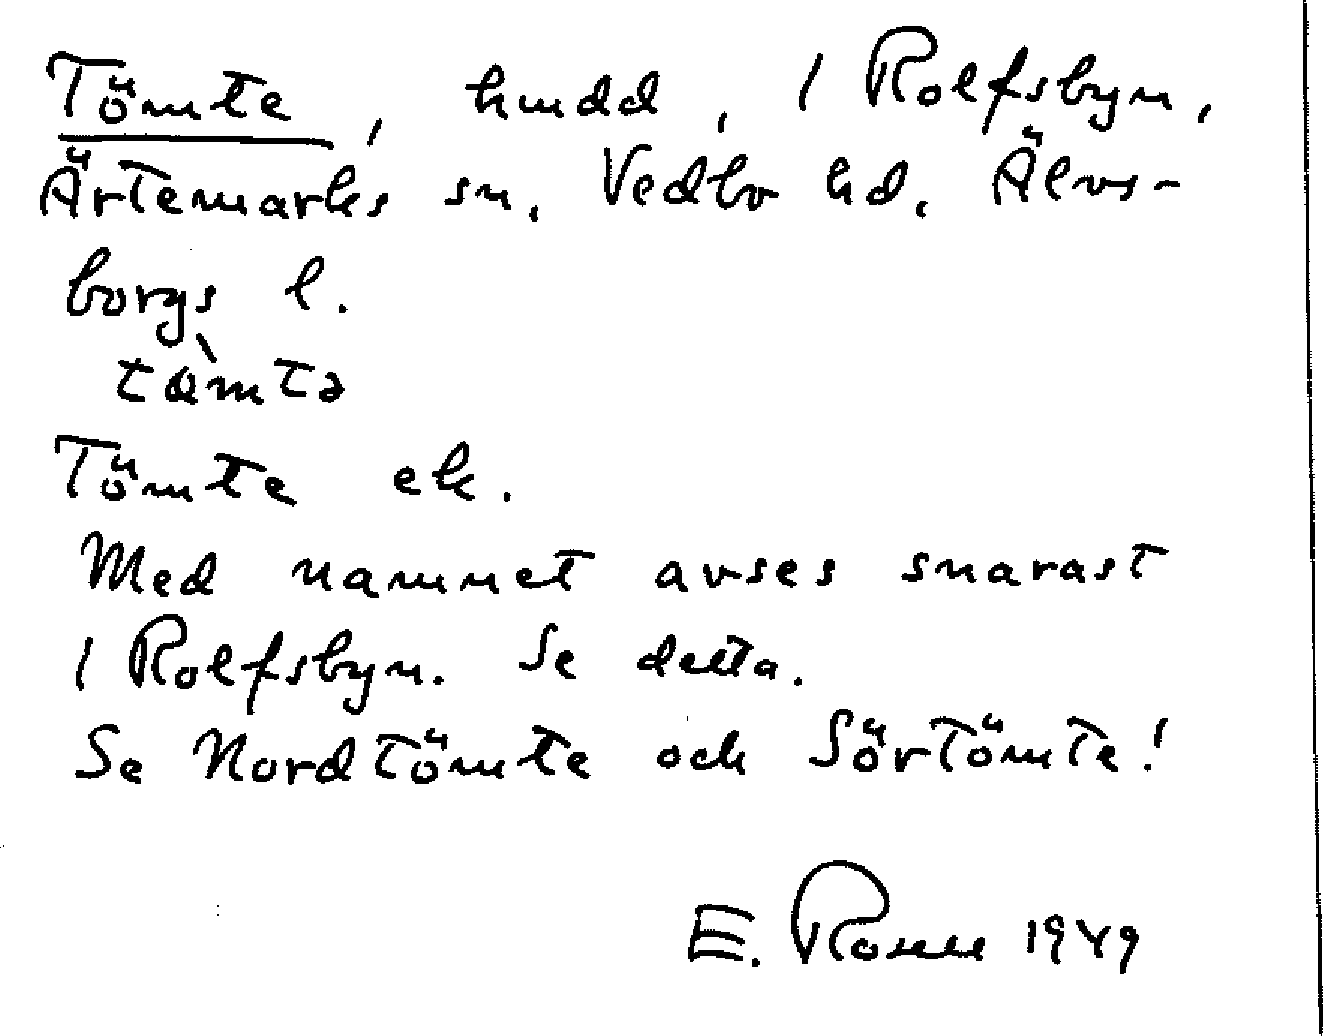 Tömte, hmdd, 1 Rolfsbyn,
Ärtemarks sn, Vedbo hd, Älvs-
borgs l.
tömtə
Tömte ek.
Med namnet avses snarast
1 Rolfsbyn. Se detta.
Se Nordtömte och Sörtömte!
E. Rosell 1949